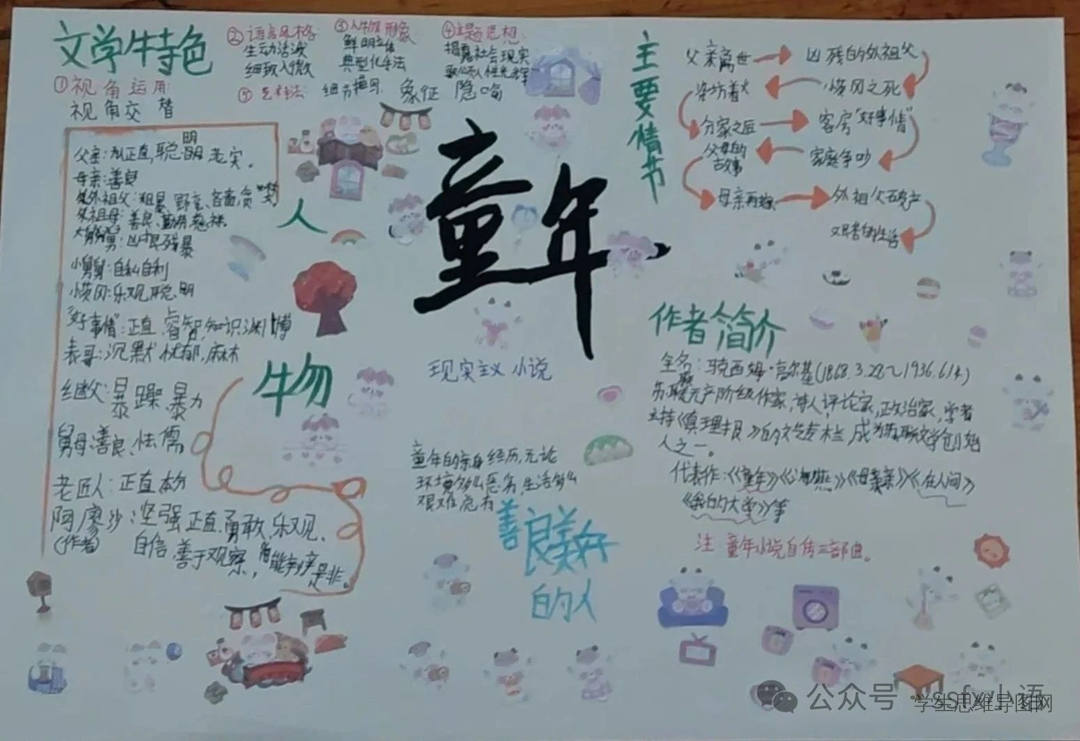 文学特色
①视角运用
视角交替
②语言风格
生动活泼
细致入微
③人物形象
鲜明立体
典型化手法
④主题思想
揭露社会现实
⑤艺术手法
细节描写
象征 隐喻
童年
现实主义小说
童年的亲身经历,无论
环境多么恶劣,生活多么
艰难总有
善良美好
的人
人物
父亲:正直,聪明,老实。
母亲:善良
外祖父:粗暴 野蛮、吝啬、贪婪
外祖母:善良、勤劳、慈祥
大舅舅:凶狠残暴
小舅舅:自私自利
小茨冈:乐观,聪明
"好事情":正直,睿智,知识渊博
表哥:沉默 忧郁,麻木
继父:暴躁,暴力
舅母:善良,怯懦
老匠人:正直本分
阿廖沙:坚强 正直,勇敢,乐观、
(作者) 自信 善于观察,能辨是非。
主要情节
父亲离世
凶残的外祖父
小茨冈之死
染坊着火
分家之后
客房"好事情"
家庭争吵
父母的
故事
母亲再嫁
外祖父破产
作者简介
全名:马克西姆·高尔基(1868.3.28~1936.6.14)
苏联无产阶级作家,诗人评论家,政治家,学者
主持《真理报》的文艺专栏,成为苏联文学创始
人之一。
代表作:《童年》《海燕》《母亲》《在人间》
《我的大学》等
注:童年小说自传三部曲。
公众号
学生思维导图网